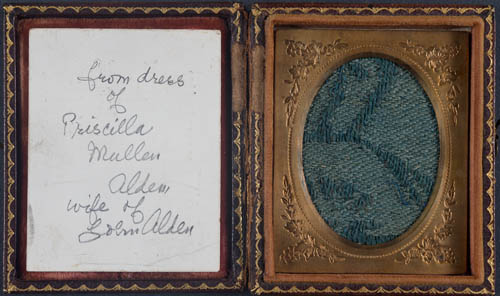 from dress
of
Priscilla
Mullen
Alden
wife of
John Alden